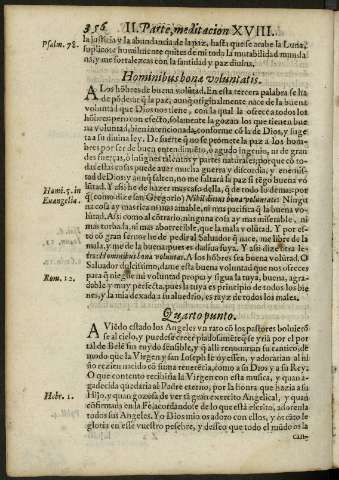 356 II. Parte, meditacion XVIII.
Psalm. 78.
la justicia y la abundancia de la paz, hasta que se acabe la Luna,
suplicote humilmente quites de mi toda la mutabilidad munda
na, y me fortalezcas con la santidad y paz diuina.
Hominibus bona voluntatis.
A Los hõbres de buena volũtad. En esta tercera palabra se ha
de põderar q̃ la paz, aunq̃ originalmente nace de la buena
voluntad que Dios nos tiene, con la qual la ofrece a todos los
hõbres; pero con efecto, solamente la gozan los que tienen bue
na voluntad, bien intencionada, conforme cõ la de Dios, y suge
ta a su diuina ley. De suerte q̃ no se promete la paz a los hom-
bres por ser de buen entendimiẽto, o agudo ingenio, ni de gran
des fuerças, ò insignes talentos y partes naturales; porque cõ to-
das estas cosas puede auer mucha guerra y discordia, y enemis-
tad de Dios y aunq̃ falten, no me faltará la paz si tẽgo buena vo
Hami. 5. in
Euangelia.
lũtad. Y asi he de hazer mas caso della, q̃ de todo lo demas: por
q̃ (como dize san Gregorio) Nihil ditius bona voluntate: Ningu
na cosa ay mas rica ni mas amable, ni mas pacifica q̃ la buena vo
lũtad. Asi como al cõtrario, ninguna cosa ay mas miserable, ni
mas turbada, ni mas aborrecible, que la mala volũtad. Y por es-
to cõ gran feruor he de pedir al Saluador q̃ nace, me libre de la
mala, y me de la buena: pues es dadiua suya. Y asi dize otra le-
tra: Hominibus bona voluntas. A los hõbres sea buena volũtad. O
Saluador dulcissimo, dame esta buena voluntad que nos ofreces
Rom. 12.
para q̃ niegue mi voluntad propia y siga la tuya, buena, agra-
dable y muy perfecta, pues la tuya es principio de todos los bie
nes, y la mia dexada a su aluedrio, es rayz de todos los males.
Quarto punto.
A Viẽdo estado los Angeles vn rato cõ los pastores boluierõ
se al cielo, y puedese creer piadosamẽte q̃ se yriã por el por
tal de Belẽ sin ruydo sensible, y q̃ alli renouarian su cantico: de
modo que la Virgen y san Ioseph le oyessen, y adorarian al ni
ño reziẽ nacido cõ suma reuerẽcia, como a su Dios y a su Rey.
O que contento recibiria la Virgen con esta musica, y quan a-
gradecida quedaria al Padre eterno, por la honra que hazia a su
Hebr. 1.
Hijo, y quan gozosa de ver tã gran exercito Angelical, y quan
cõfirmada en la Fe, acordandose de lo que està escrito, adorenla
todos sus Angeles. Yo Dios mio os adoro con ellos, y os cãto le
gloria en esse vuestro pesebre, y desseo que todo el mũdo os la